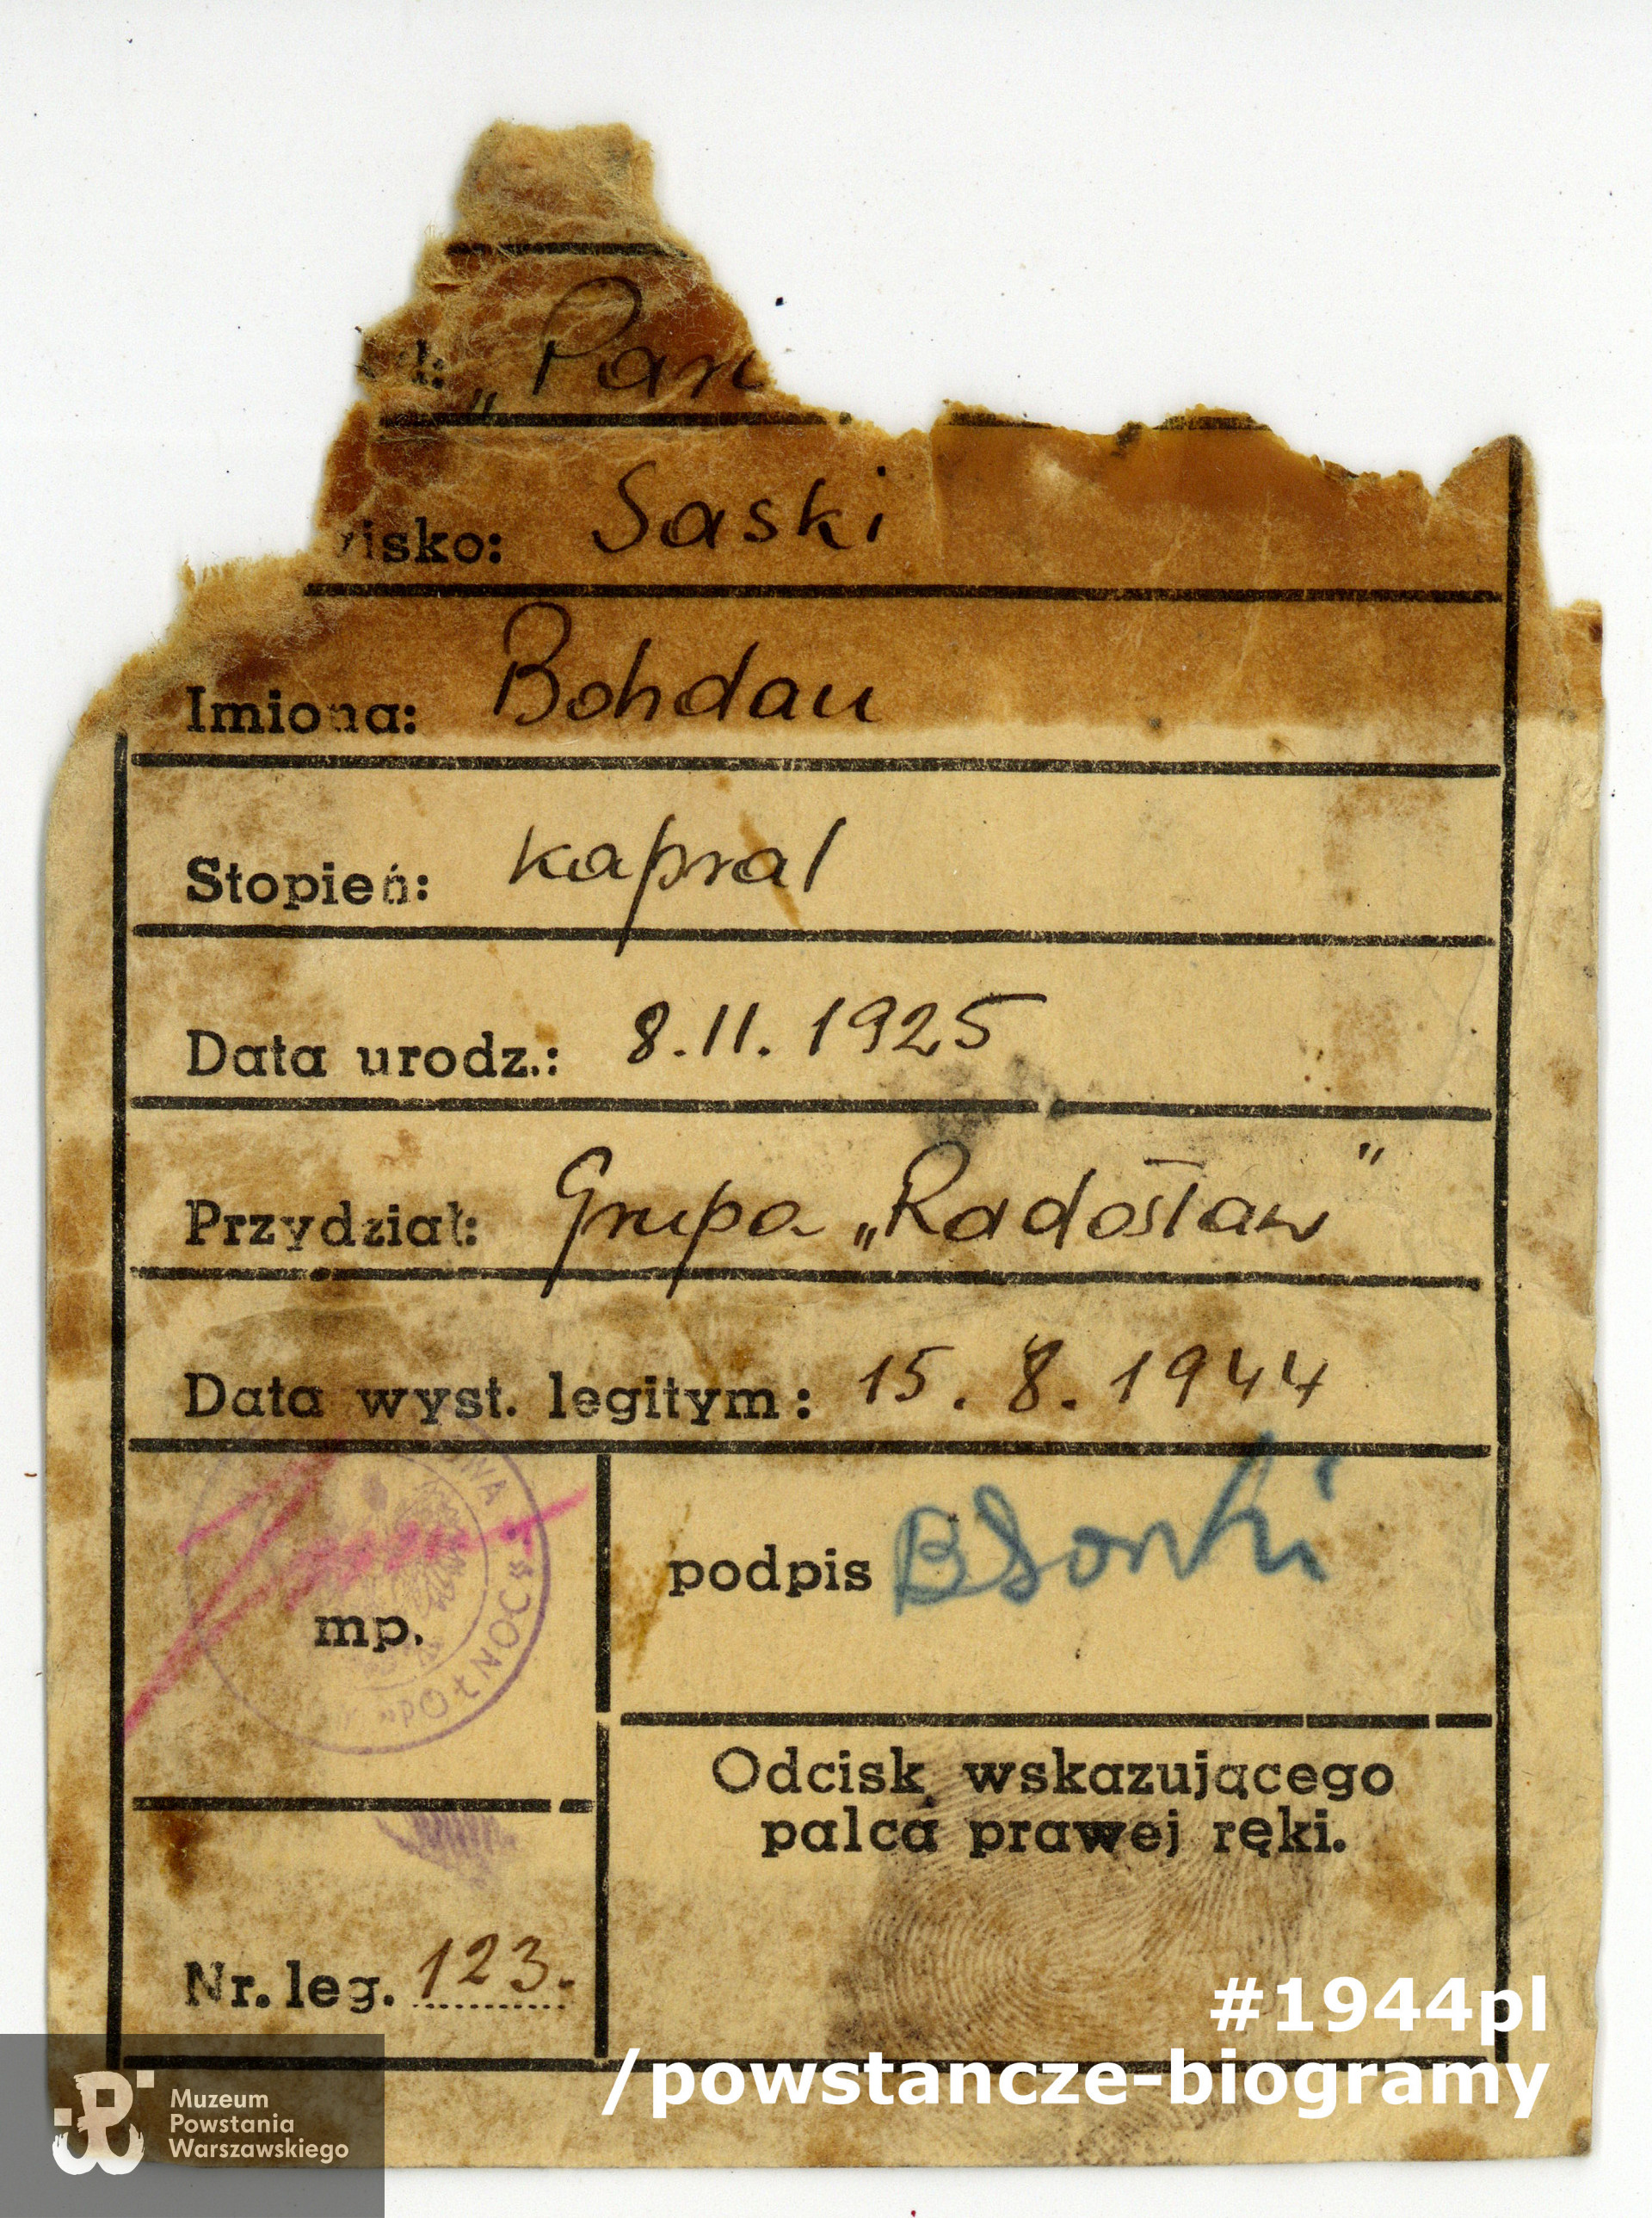 „Pan
zisko: Saski
Imiona: Bohdan
Stopień: kapral
Data urodz.: 8.II.1925
Przydział: Grupa „Radosław"
Data wyst. legitym: 15.8.1944
mp.
PÓŁNOC"
podpis BSaski
Odcisk wskazującego
palca prawej ręki.
Nr. leg. 123.
#1944pl
/powstancze-biogramy
Muzeum
Powstania
Warszawskiego